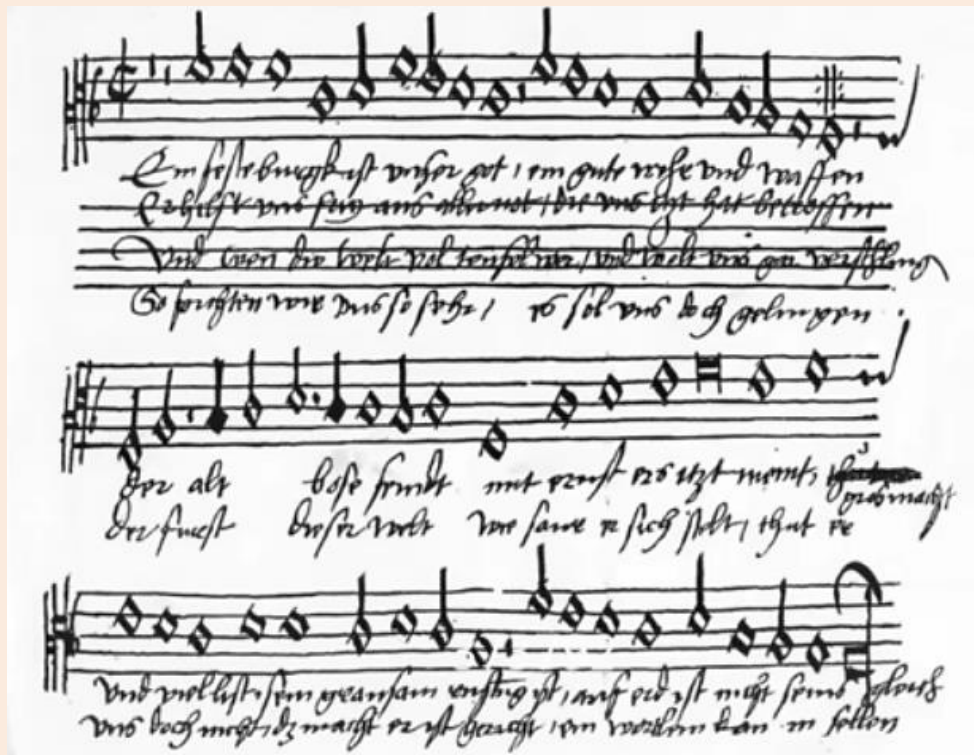 Ein feste burgk ist vnser got / ein gute wehr vnd waffen
Er hilft vns frey aus aller not / die vns itzt hat betroffen
Vnd wen die welt vol teufel wer / vnd wolt vns gar verschling
So furchten wir vns so sehr / es sol vns doch gelingen
der alt bose feindt mit ernst ers itzt meint /
gros macht
der furst dieser welt wie saur er sich stelt / thut er
vnd viel list sein grausam rustung ist / auf erd ist nicht seins gleich
vns doch nicht / dz macht er ist gericht / ein wortlein kan in fellen